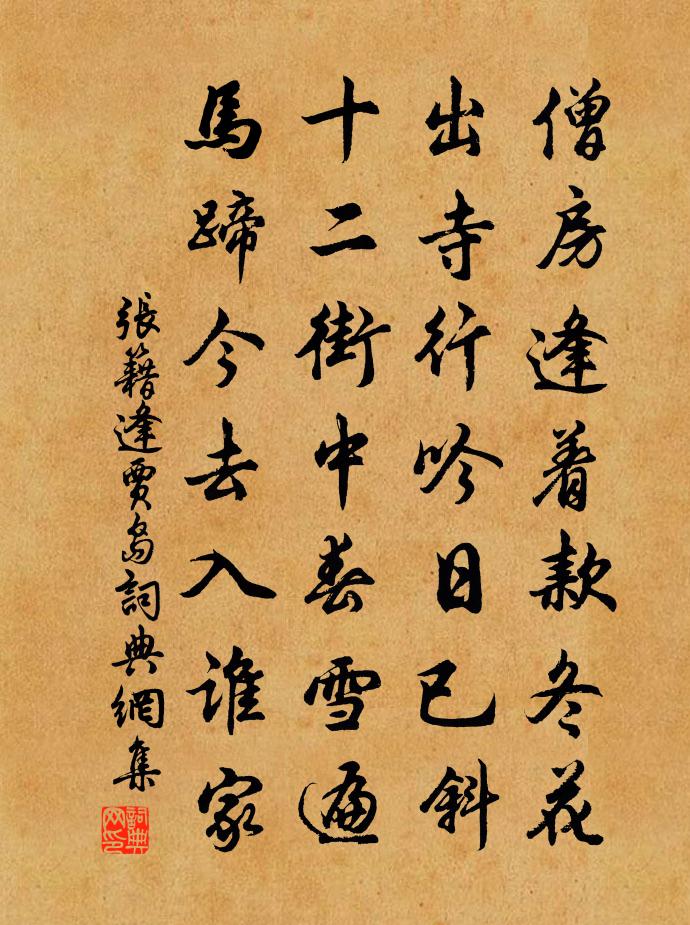 僧房逢着款冬花
出寺行吟日已斜
十二街中春雪遍
馬蹄今去入誰家
張籍逢賈島詞典網集
詞典网印